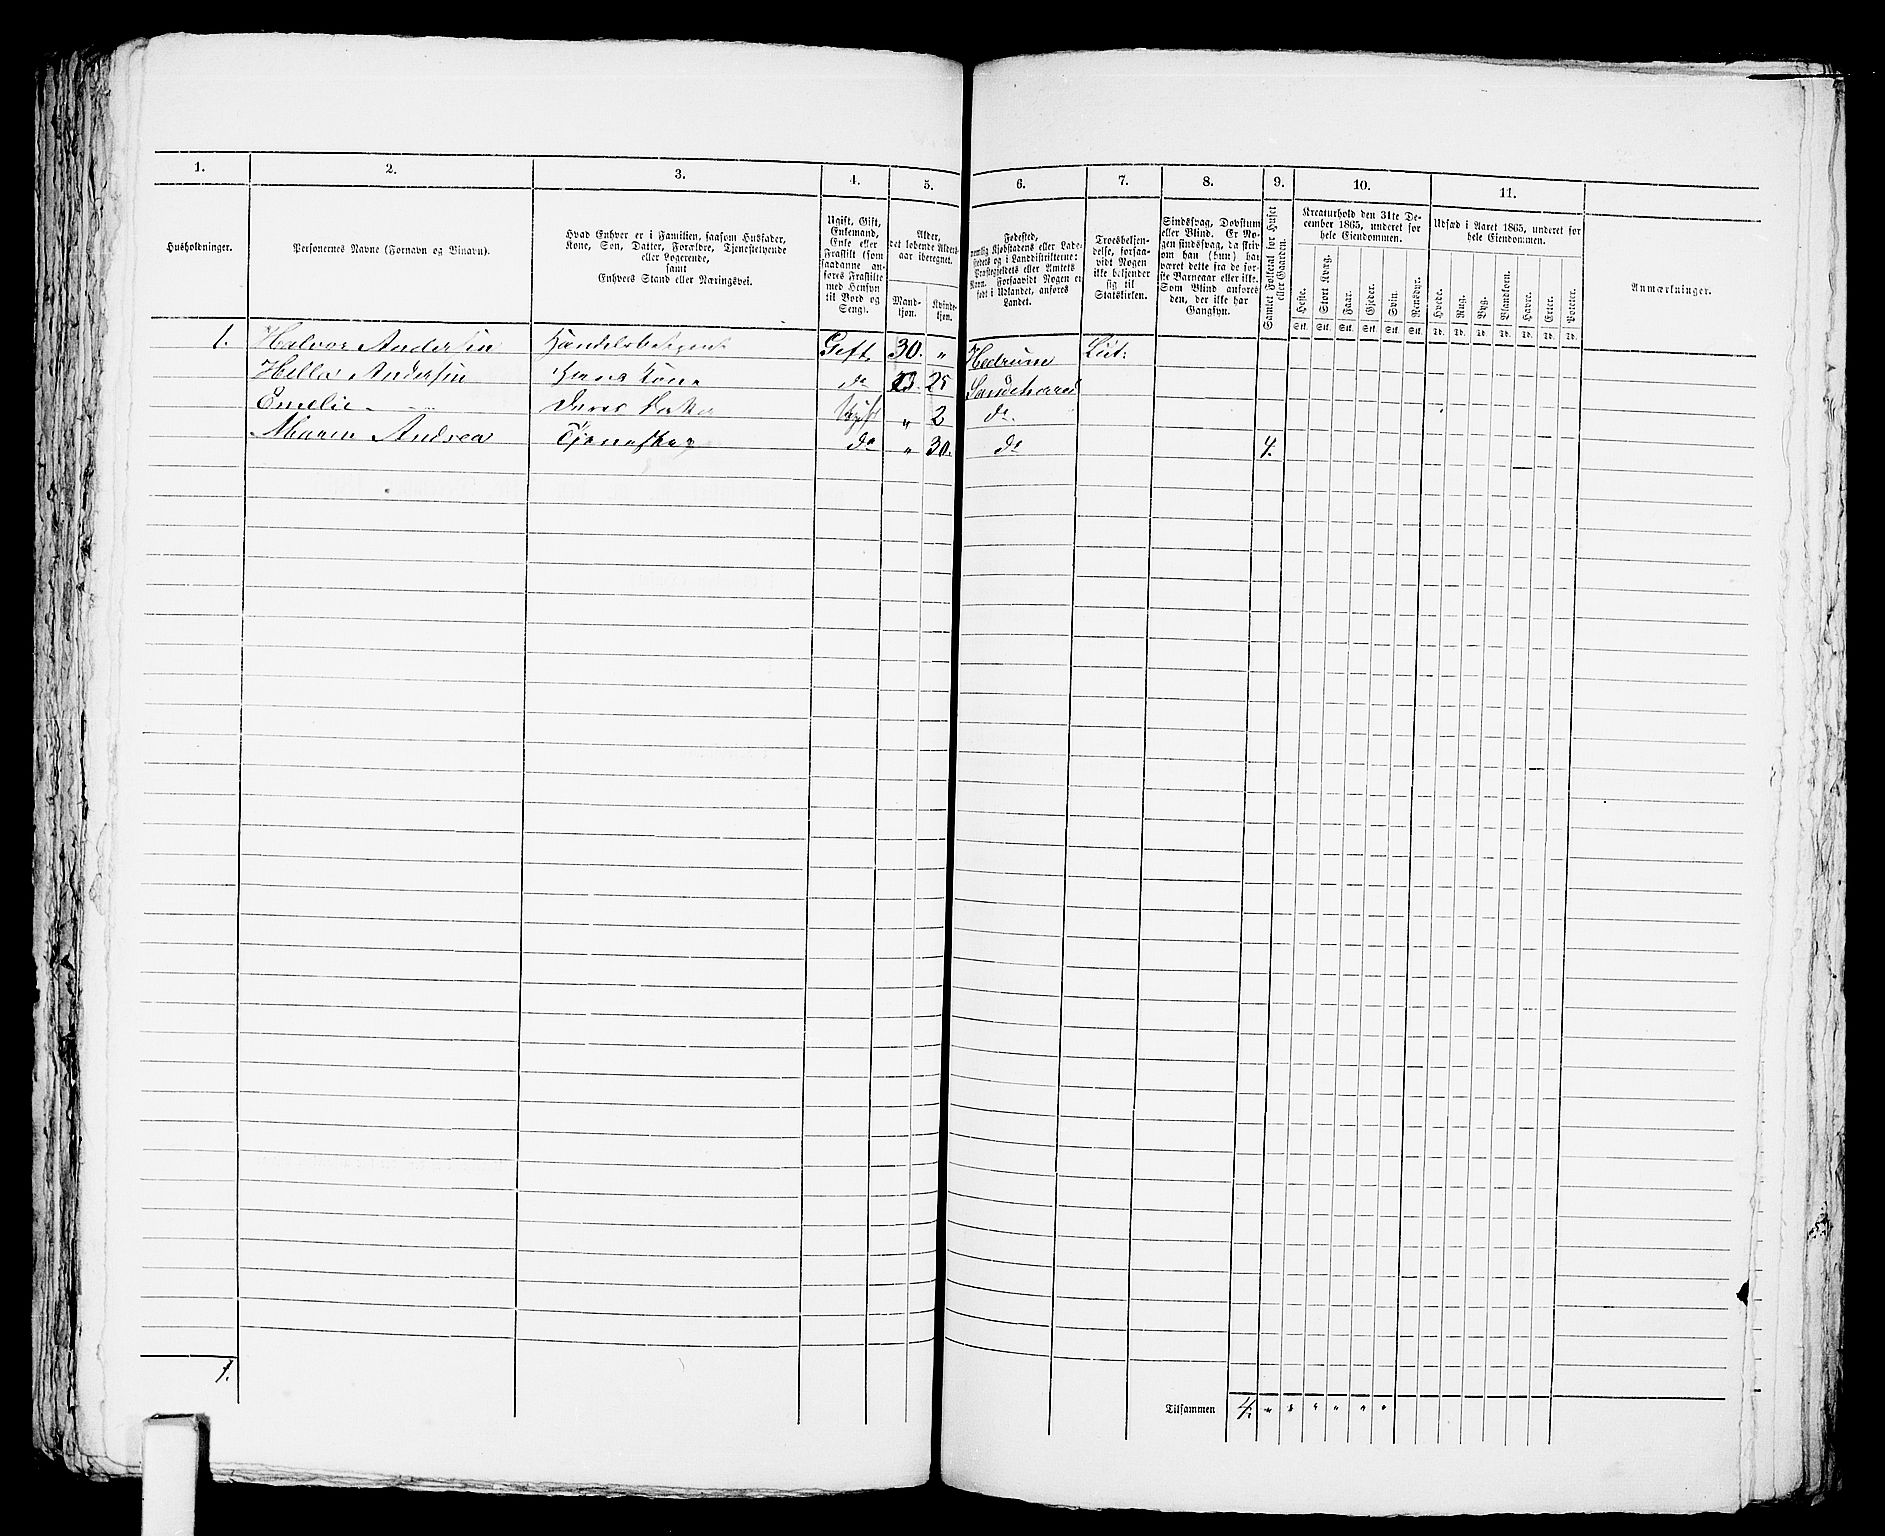 1. 2. 3. 4. 5. 6. 7. 8. 9. 10. 11.
Husholdninger.
Personernes Navne (Fornavn og Binavn).
Hvad Enhver er i Familien, saasom Husfader,
Kone, Søn, Datter, Forældre, Tjenestetyende
eller Logerende,
samt
Enhvers Stand eller Næringsvei.
Ugift, Gift,
Enkemand,
Enke eller
Fraskilt (som
saadanne an-
føres Fraskilte
med Hensyn
til Bord og
Seng).
Alder,
det løbende Alders-
aar iberegnet.
Mand-
kjøn.
Kvinde-
kjøn.
Fødested,
nemlig Kjøbstadens eller Lade-
stedets og i Landdistrikterne:
Præstegjeldets eller Amtets
Navn. Forsaavidt Nogen er
født i Udlandet, anføres
Landet.
Troesbekjen-
delse, forsaa-
vidt Nogen
ikke bekjender
sig til
Statskirken.
Sindssvag, Døvstum
eller Blind. Er No-
gen sindssvag, da skriv
om han (hun) har
været dette fra de før-
ste Barneaar eller ikke.
Som Blind anføres
den, der ikke har
Gangsyn.
Samlet Folketal for Huset
eller Gaarden.
Kreaturhold den 31te De-
cember 1865, underet for
hele Eiendommen.
Heste. Stort Kvæg. Faar. Gjeder. Svin. Rensdyr.
Stk. Stk. Stk. Stk. Stk. Stk.
Udsæd i Aaret 1865, underet for
hele Eiendommen.
Hvede. Rug. Byg. Blandkorn. Havre. Erter. Poteter.
Td. Td. Td. Td. Td. Td. Td.
Anmærkninger.
1. Halvor Andersen Handelsbetjent Gift 30. " Hedrum Lut:
Andersen Hans Kone do 25 Sandeherred
Emelie Deres Ugift " 2 do
Maren Andrea do " 30. do 4.
1.
Tilsammen 4. " " " " " "